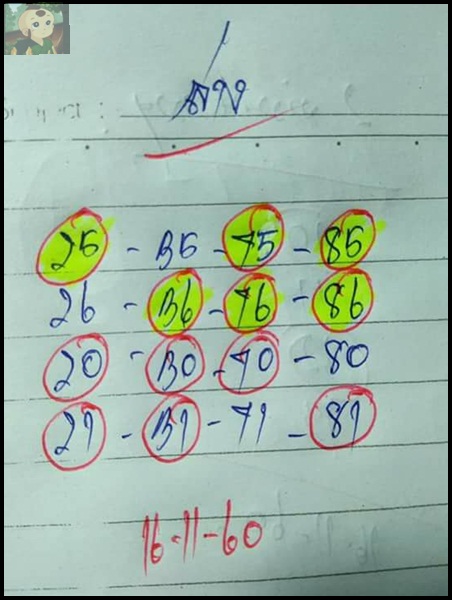 25 - 35 - 75 - 85
26 - 36 - 76 - 86
20 - 30 - 70 - 80
21 - 31 - 71 - 81
16-11-60